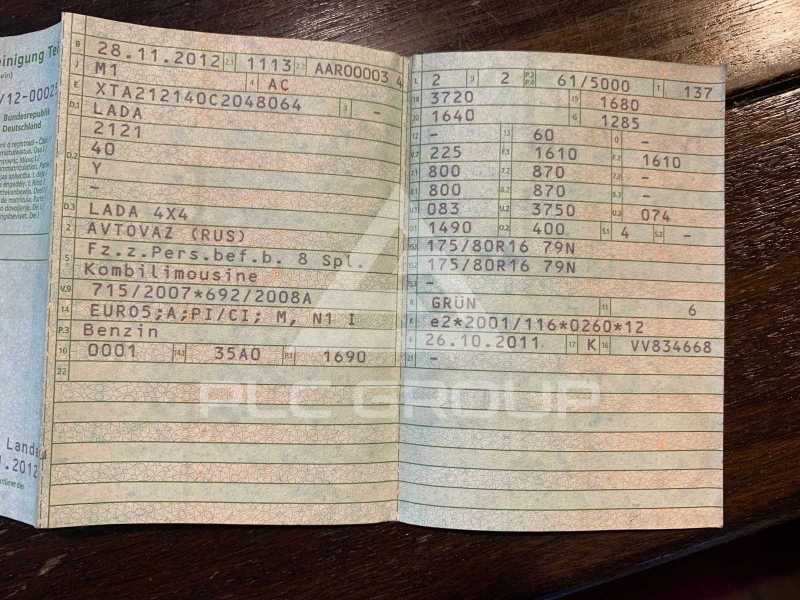 einigung Te
ein)
/12-0002
Bundesrepublik
Deutschland
B 28.11.2012 2.1 1113 2.2 AAR00003 4
J M1 4 AC
E XTA212140C2048064 3 -
D.1 LADA
2121
D.2 40
Y
-
D.3 LADA 4X4
2 AVTOVAZ (RUS)
5 Fz.z.Pers.bef.b. 8 Spl.
Kombilimousine
V.9 715/2007*692/2008A
14 EURO5;A;PI/CI; M, N1 I
P.3 Benzin
10 0001 14.1 35A0 P.1 1690
22
L 2 9 2 P.2 P.4 61/5000 T 137
18 3720 19 1680
20 1640 G 1285
12 - 13 60 Q -
V.7 225 F.1 1610 F.2 1610
7.1 800 7.2 870 7.3 -
8.1 800 8.2 870 8.3 -
U.1 083 U.2 3750 U.3 074
O.1 1490 O.2 400 S.1 4 S.2 -
15.1 175/80R16 79N
15.2 175/80R16 79N
15.3 -
R GRÜN 11 6
K e2*2001/116*0260*12
6 26.10.2011 17 K 16 VV834668
21 -
PLC GROUP
Landa
1.2012